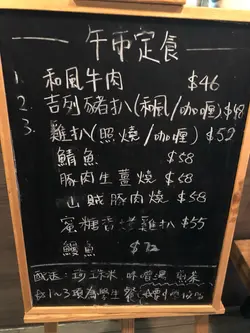 午市定食
1. 和風牛肉 $46
2. 吉列豬扒(和風/咖喱) $48
3. 雞扒(照燒/咖喱) $52
鯖魚 $58
豚肉生薑燒 $58
山賊豚肉燒 $58
蜜糖香蒜雞扒 $55
鰻魚 $72
配送: 珍珠米 味噌湯 煎茶
1~3項為學生餐